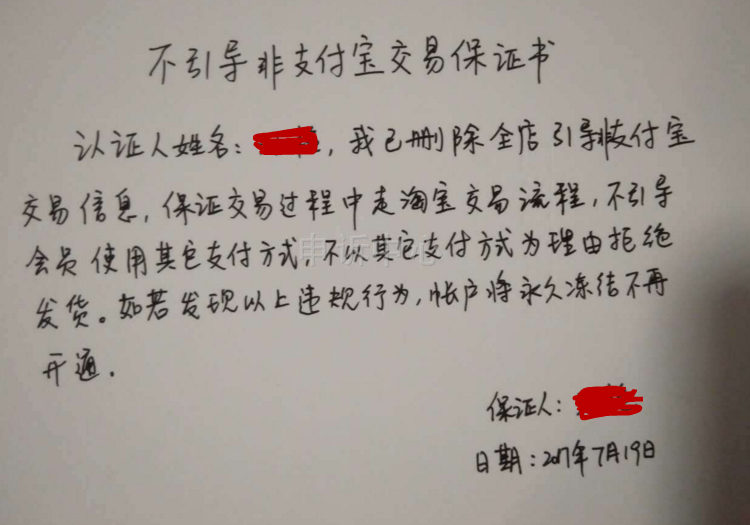 不引导非支付宝交易保证书
认证人姓名：，我已删除全店引导非支付宝
交易信息，保证交易过程中走淘宝交易流程，不引导
会员使用其它支付方式，不以其它支付方式为理由拒绝
发货。如若发现以上违规行为，帐户将永久冻结不再
开通．
保证人：
日期：2017年7月19日